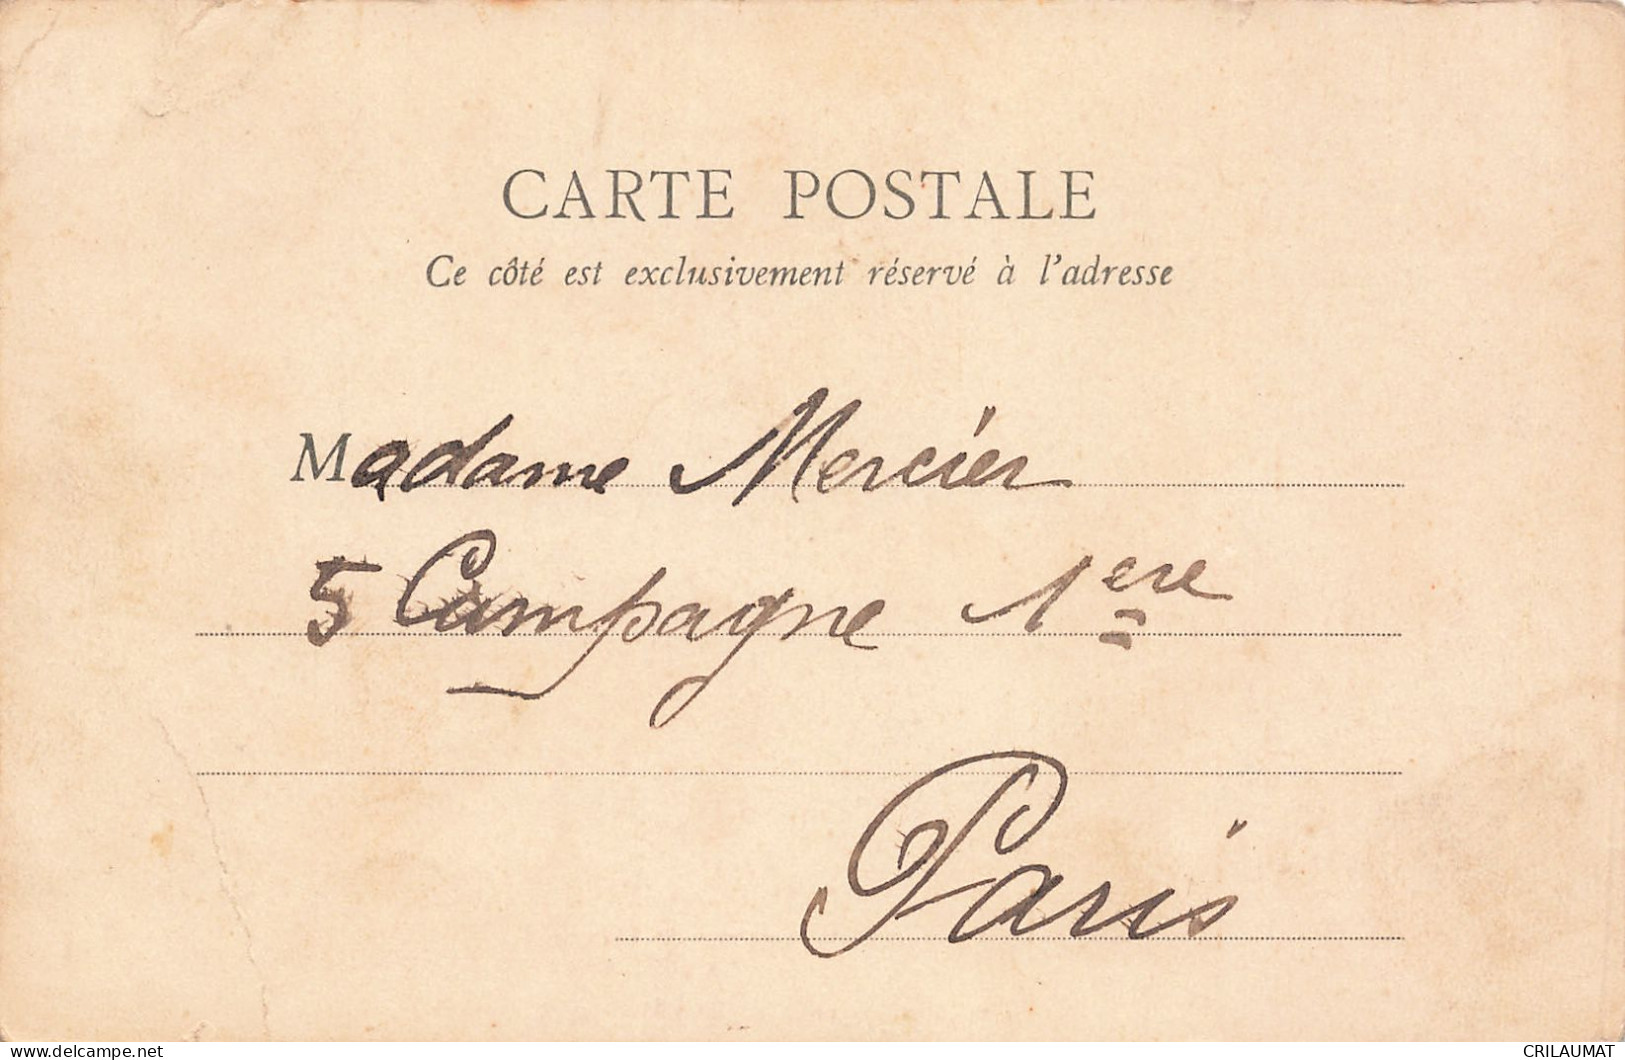 CARTE POSTALE
Ce côté est exclusivement réservé à l'adresse
Madame Mercier
5 Campagne 1ere
Paris
www.delcampe.net
CRILAUMAT